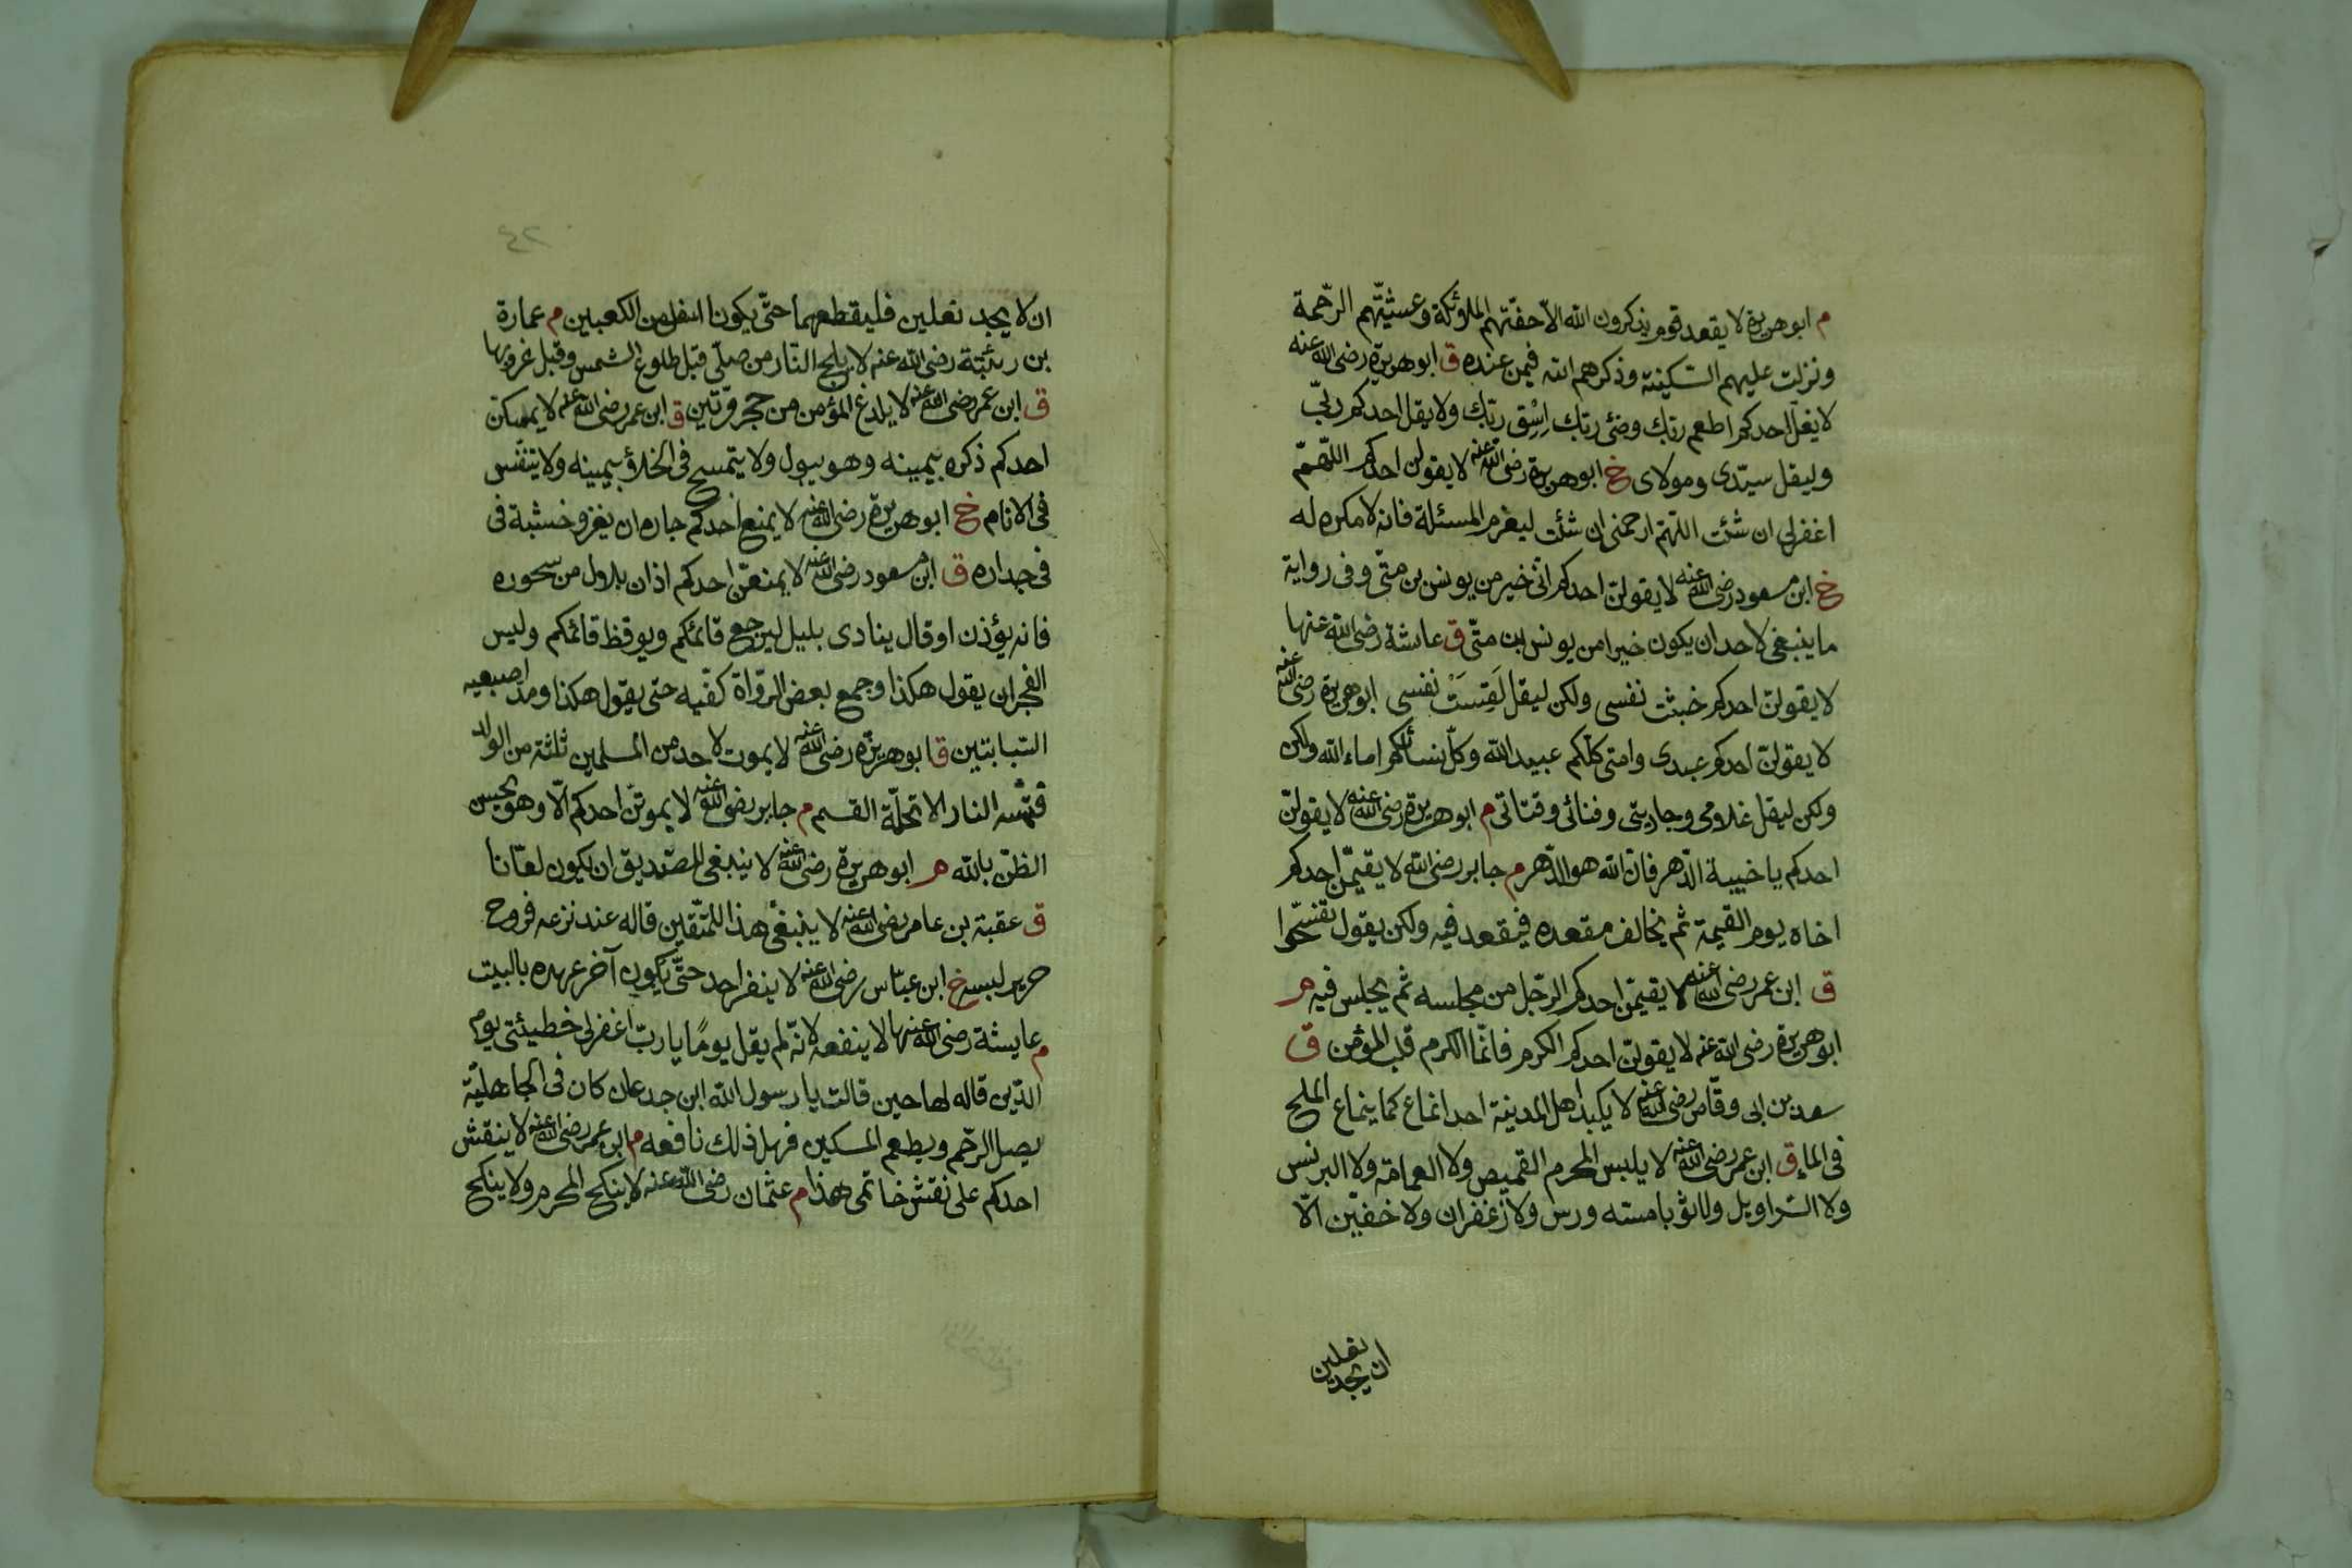 م ابو هريرة لا يقعد قوم يذكرون الله الا حفتهم الملائكة وغشيتهم الرحمة
ونزلت عليهم السكينة وذكرهم الله فيمن عنده ق ابو هريرة رضى الله عنه
لا يقل احدكم اطعم ربك وضئ ربك اسق ربك ولا يقل احدكم ربى
وليقل سيدى ومولاى خ ابو هريرة رضى الله عنه لا يقولن احدكم اللهم
اغفرلى ان شئت اللهم ارحمنى ان شئت ليعزم المسئلة فانه لا مكره له
خ ابن مسعود رضى الله عنه لا يقولن احدكم انى خير من يونس بن متى وفى رواية
ما ينبغى لاحد ان يكون خيرا من يونس ابن متى ق عائشة رضى الله عنها
لا يقولن احدكم خبثت نفسى ولكن ليقل لقست نفسى ابو هريرة رضى الله عنه
لا يقولن احدكم عبدى وامتى كلكم عبيد الله وكل نسائكم اماء الله ولكن
ولكن ليقل غلامى وجاريتى وفتائى وفتاتى م ابو هريرة رضى الله عنه لا يقولن
احدكم يا خيبة الدهر فان الله هو الدهر م جابر رضى الله لا يقيمن احدكم
اخاه يوم القيمة ثم يخالف مقعده فيقعد فيه ولكن يقول تفسحوا
ق ابن عمر رضى الله عنه لا يقيمن احدكم الرجل من مجلسه ثم يجلس فيه م
ابو هريرة رضى الله عنه لا يقولن احدكم الكرم فانما الكرم قلب المؤمن ق
سعد بن ابى وقاص رضى الله عنه لا يكيد اهل المدينة احد انماع كما ينماع الملح
فى الماء ق ابن عمر رضى الله عنه لا يلبس المحرم القميص ولا العمامة ولا البرنس
ولا السراويل ولا ثوبا مسته ورس ولا زعفران ولا خفين الا
ان يجد نعلين
٤٢
ان لا يجد نعلين فليقطعهما حتى يكونا اسفل من الكعبين م عمارة
بن رئبة رضى الله عنه لا يلج النار من صلى قبل طلوع الشمس وقبل غروبها
ق ابن عمر رضى الله عنه لا يلدغ المؤمن من حجر مرتين ق ابن عمر رضى الله عنه لا يمسكن
احدكم ذكره بيمينه وهو يبول ولا يتمسح فى الخلاء بيمينه ولا يتنفس
فى الانام خ ابو هريرة رضى الله عنه لا يمنع احدكم جاره ان يغرو خشبة فى
فى جداره ق ابن مسعود رضى الله عنه لا يمنعن احدكم اذان بلال من سحوره
فانه يؤذن او قال ينادى بليل ليرجع قائمكم ويوقظ قائمكم وليس
الفجر ان يقول هكذا وجمع بعض الرواة كفيه حتى يقول هكذا ومد اصبعيه
السبابتين ق ابو هريرة رضى الله عنه لا يموت لاحد من المسلمين ثلثة من الولد
فتمسه النار الا تحلة القسم م جابر رضى الله عنه لا يموتن احدكم الا وهو يحسن
الظن بالله م ابو هريرة رضى الله عنه لا ينبغى للصديق ان يكون لعانا
ق عقبة بن عامر رضى الله عنه لا ينبغى هذا للمتقين قاله عند نزعه فروج
حرير لبسه خ ابن عباس رضى الله عنه لا ينفر احد حتى يكون آخر عهده بالبيت
م عايشة رضى الله عنها لا ينفعه لانه لم يقل يوما يا رب اغفرلى خطيئتى يوم
الدين قاله لها حين قالت يا رسول الله ابن جدعان كان فى الجاهلية
يصل الرحم ويطعم المسكين فهل ذلك نافعه م ابن عمر رضى الله عنه لا ينقش
احدكم على نقش خاتمى هذا م عثمان رضى الله عنه لا ينكح المحرم ولا ينكح